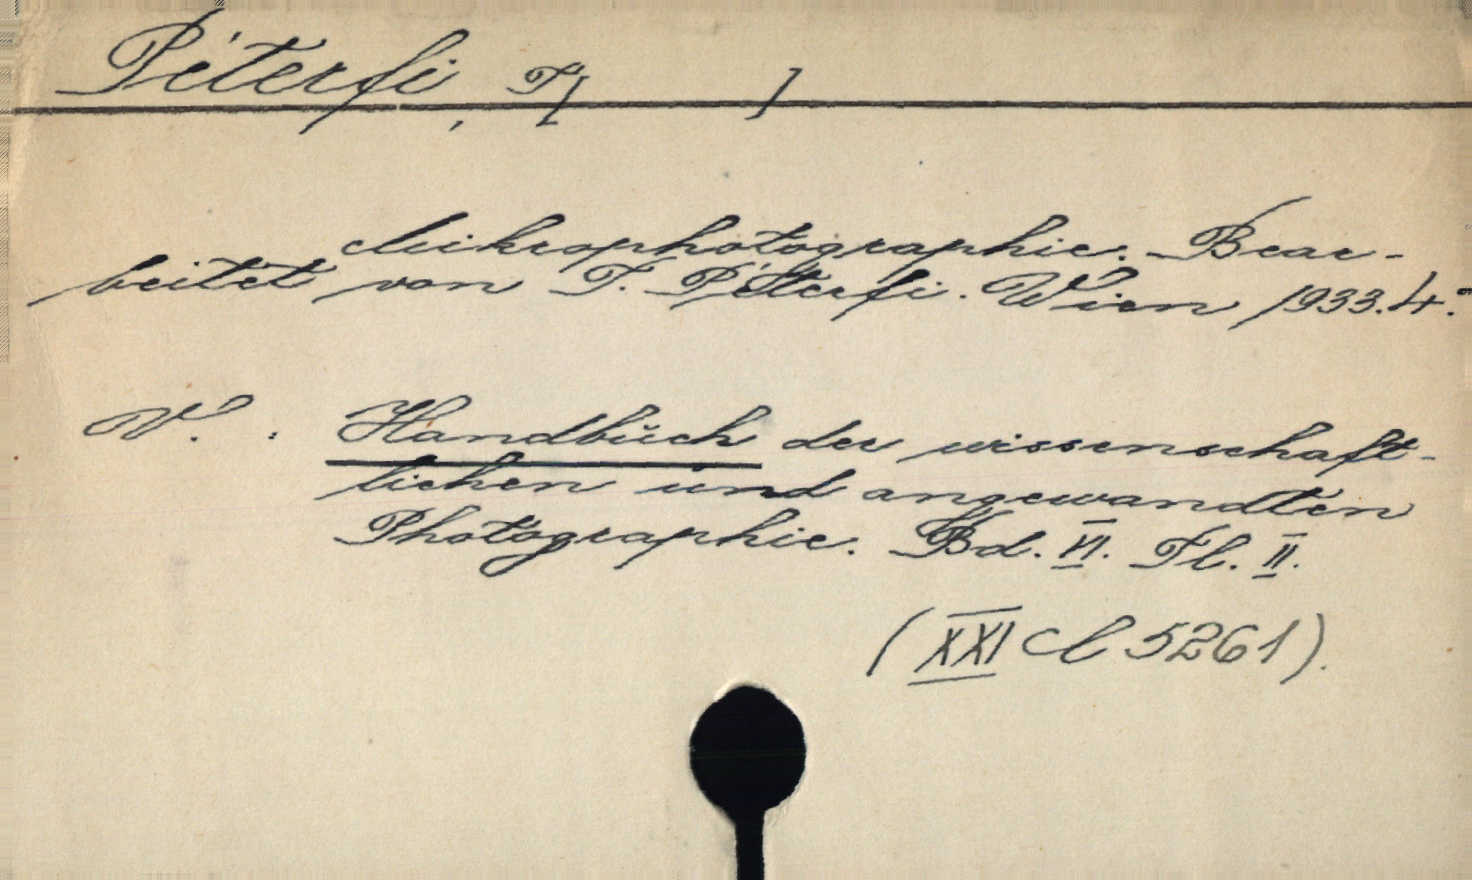 Péterfi, T[ ]
Mikrophotographie. Bear-
beitet von T. Péterfi. Wien 1933. 4.°
V. : Handbuch der wissenschaft-
lichen und angewandten
Photographie. Bd. VI. Tl. II.
(XXI Cl 5261).